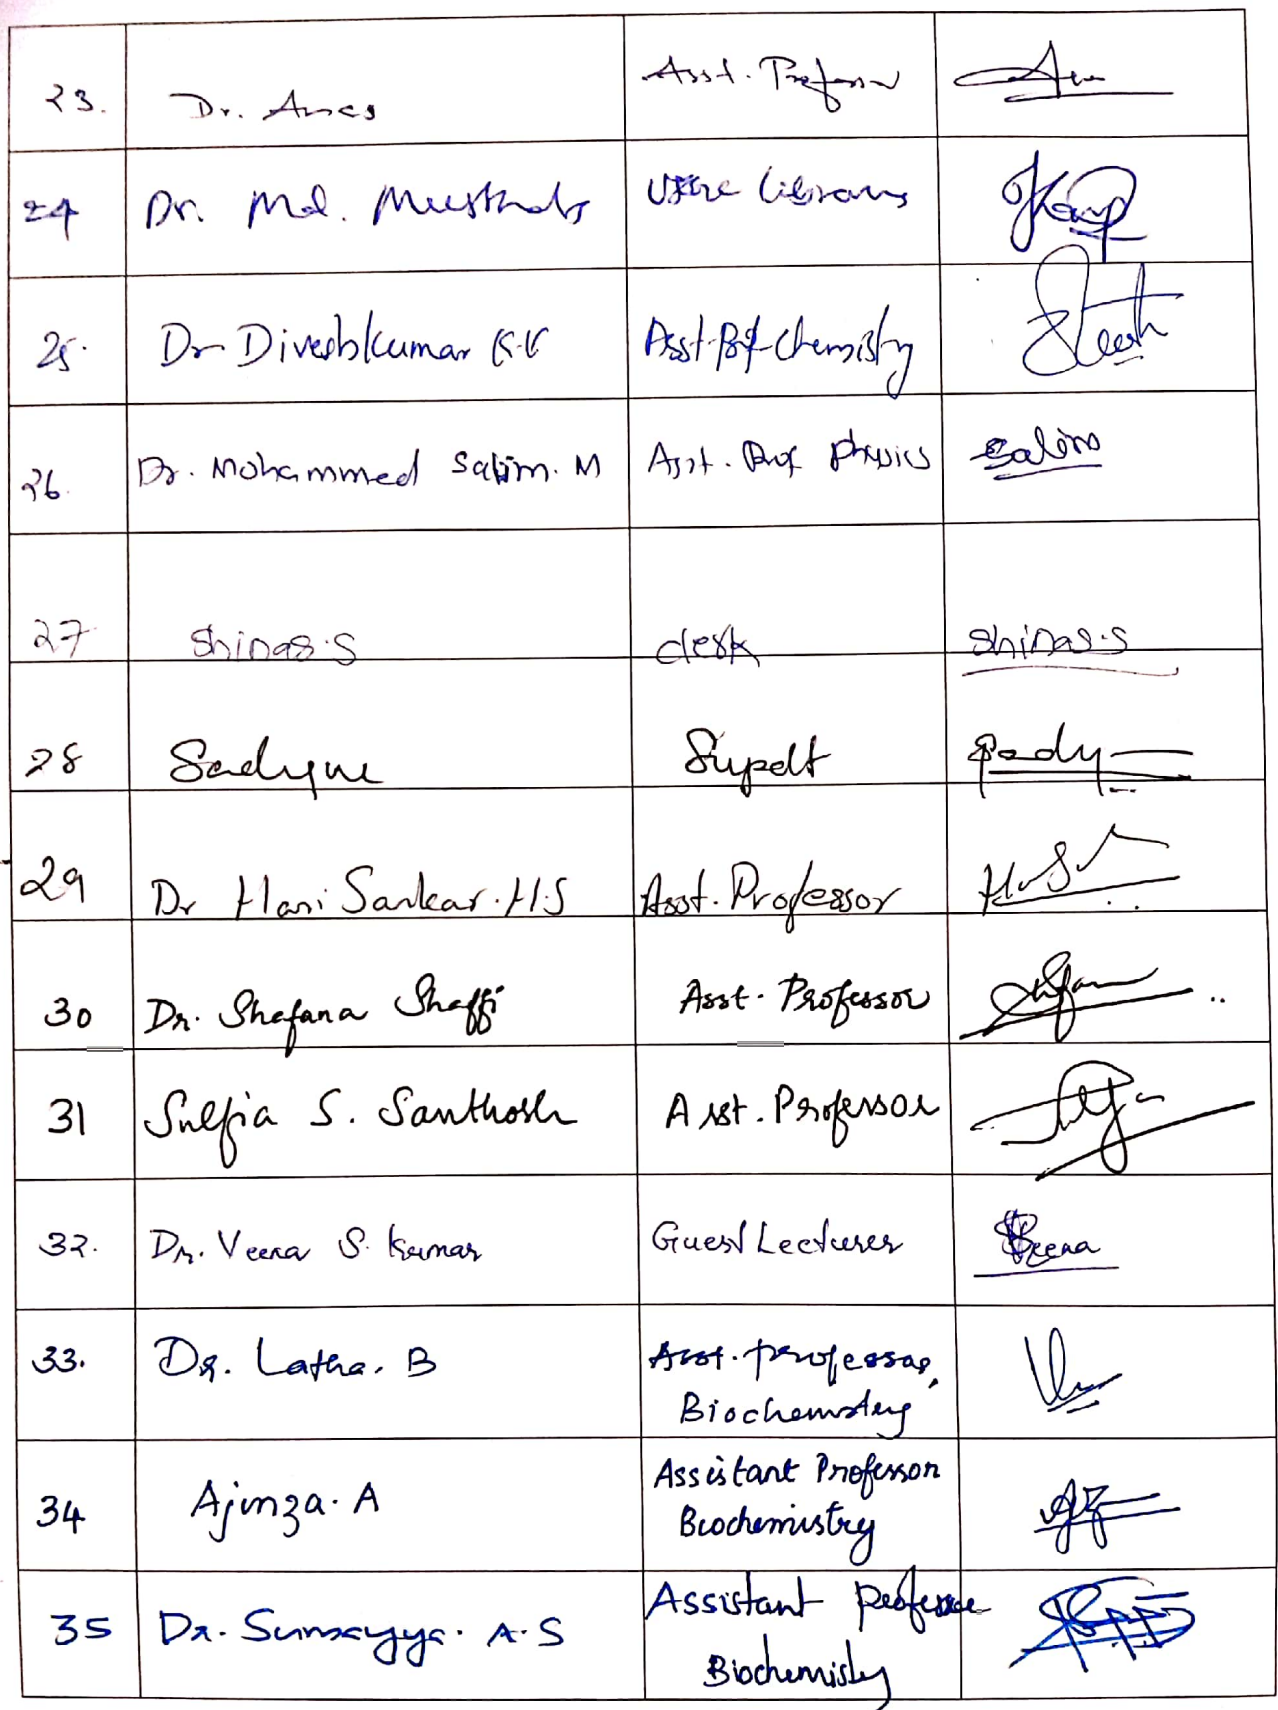 23. Dr. Anes Asst. Professor
24 Dr. Md. Librans
25. Dr Diveshkumar K.V Asst. Prof Chemistry
26. Dr. Mohammed Salim. M Asst. Prof Physics Salim
27 Shinas.S clerk Shinas.S
28 Sadyne Supdt Sady
29 Dr Hari Sankar. H.S Asst. Professor H.S
30 Dr. Shafana Shaffi Asst. Professor
31 Sulfia S. Santhosh Asst. Professor
32. Dr. Veena S. Kumar Guest Lecturer Veena
33. Dr. Latha. B Asst. professor,
Biochemistry
34 Ajinza. A Assistant Professor
Biochemistry
35 Dr. Sumayya. A.S Assistant Professor
Biochemistry